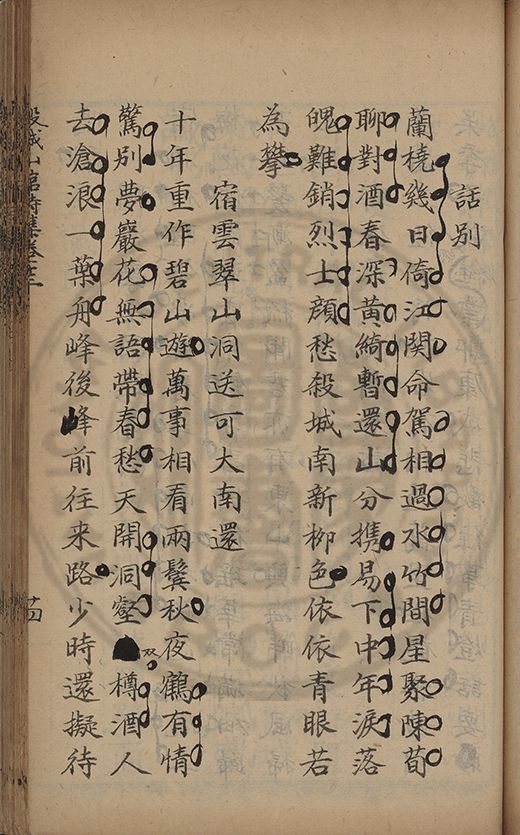 話別
蘭橈幾日倚江関命駕相過水竹間星聚陳荀
聊對酒春深黃綺暫還山分攜易下中年淚落
魄難銷烈士顔愁殺城南新柳色依依青眼若
為攀
宿雲翠山洞送可大南還
十年重作碧山遊萬事相看兩鬢秋夜鶴有情
驚別夢巖花無語帶春愁天開洞壑双樽酒人
去滄浪一葉舟峰後峰前往来路少時還擬待
穀城山舘詩集卷